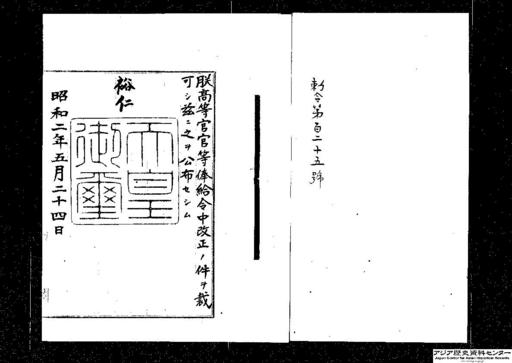 勅令第百二十五號
朕高等官官等俸給令中改正ノ件ヲ裁
可シ茲ニ之ヲ公布セシム
裕仁
天皇
御璽
昭和二年五月二十四日
アジア歴史資料センター
Japan Center for Asian Historical Records